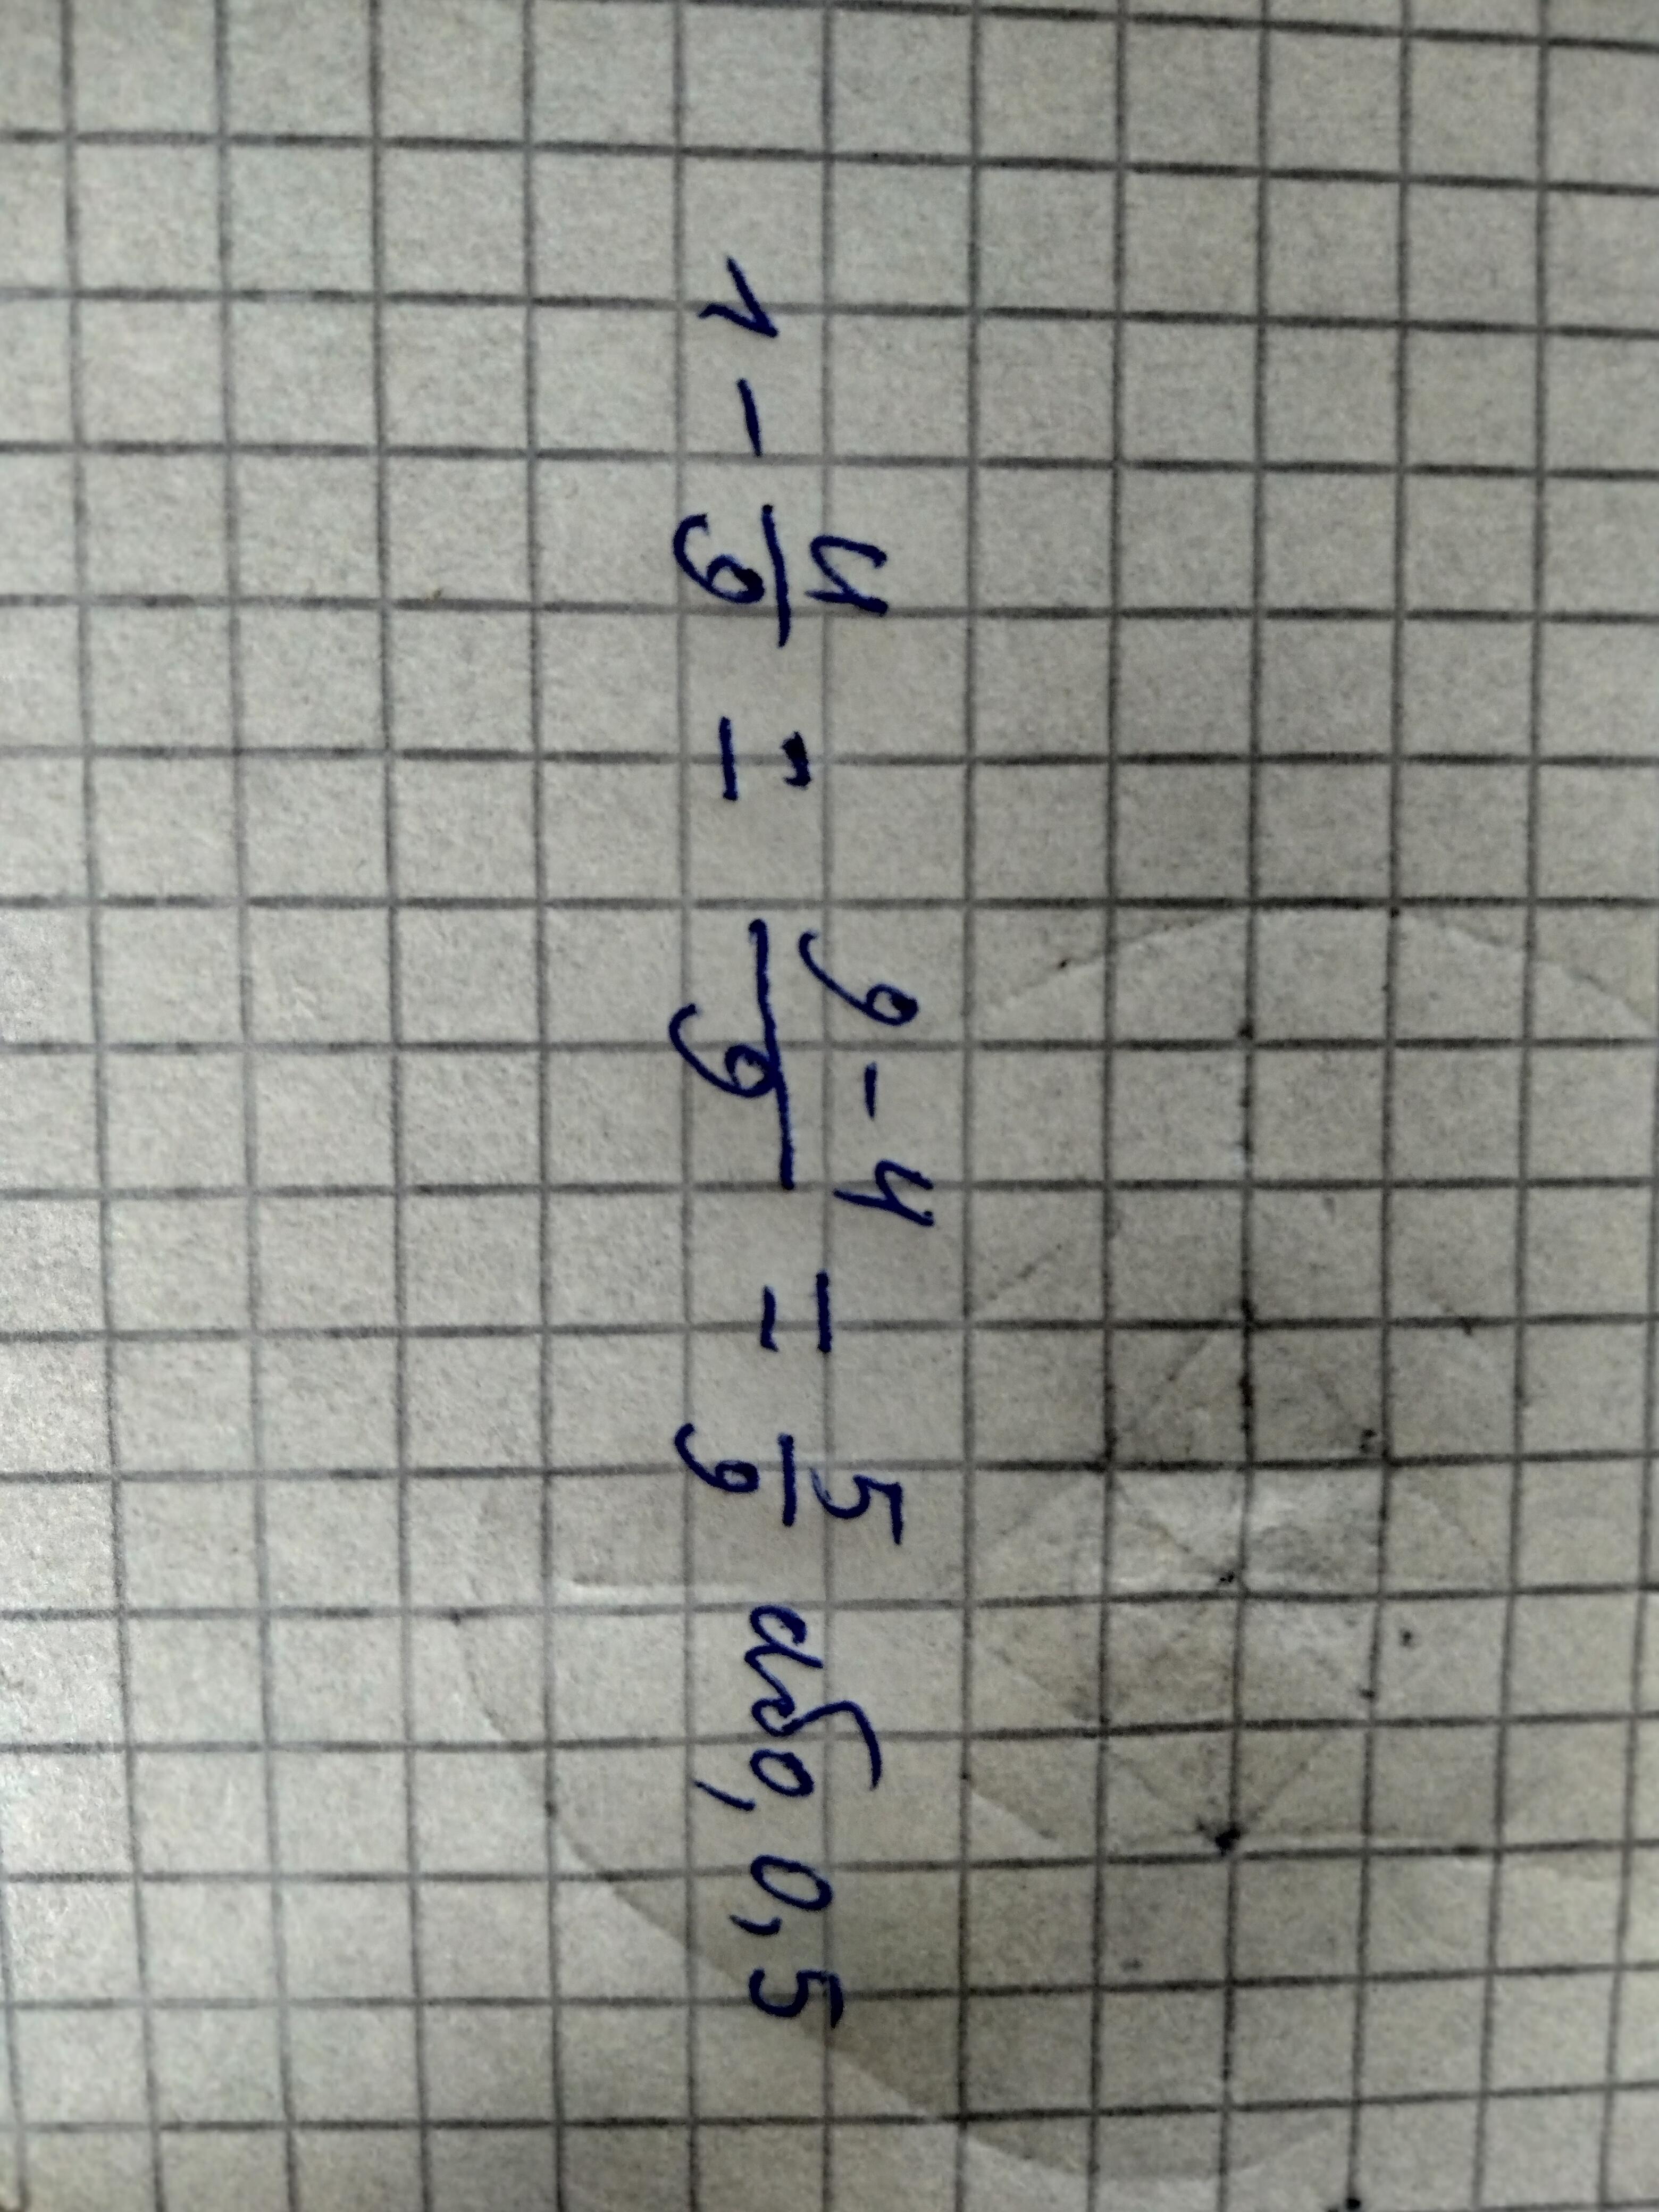 1 - 4/9 = 9-4/9 = 5/9 або, 0,5